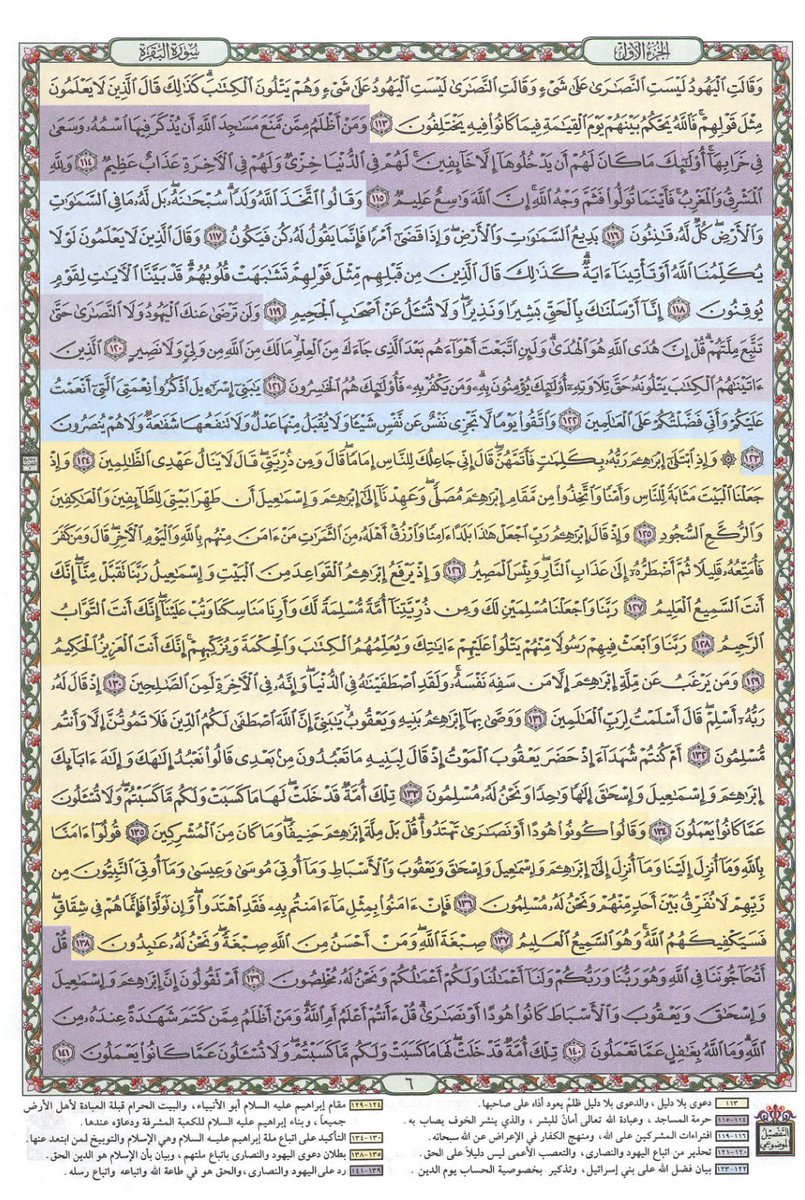 الجُزءُ الأوّل
سُورَةُ البَقَرَة
وَقَالَتِ ٱلْيَهُودُ لَيْسَتِ ٱلنَّصَٰرَىٰ عَلَىٰ شَىْءٍ وَقَالَتِ ٱلنَّصَٰرَىٰ لَيْسَتِ ٱلْيَهُودُ عَلَىٰ شَىْءٍ وَهُمْ يَتْلُونَ ٱلْكِتَٰبَ ۗ كَذَٰلِكَ قَالَ ٱلَّذِينَ لَا يَعْلَمُونَ
مِثْلَ قَوْلِهِمْ ۚ فَٱللَّهُ يَحْكُمُ بَيْنَهُمْ يَوْمَ ٱلْقِيَٰمَةِ فِيمَا كَانُوا۟ فِيهِ يَخْتَلِفُونَ ١١٣ وَمَنْ أَظْلَمُ مِمَّن مَّنَعَ مَسَٰجِدَ ٱللَّهِ أَن يُذْكَرَ فِيهَا ٱسْمُهُۥ وَسَعَىٰ
فِى خَرَابِهَآ ۚ أُو۟لَٰٓئِكَ مَا كَانَ لَهُمْ أَن يَدْخُلُوهَآ إِلَّا خَآئِفِينَ ۚ لَهُمْ فِى ٱلدُّنْيَا خِزْىٌ وَلَهُمْ فِى ٱلْءَاخِرَةِ عَذَابٌ عَظِيمٌ ١١٤ وَلِلَّهِ
ٱلْمَشْرِقُ وَٱلْمَغْرِبُ ۚ فَأَيْنَمَا تُوَلُّوا۟ فَثَمَّ وَجْهُ ٱللَّهِ ۚ إِنَّ ٱللَّهَ وَٰسِعٌ عَلِيمٌ ١١٥ وَقَالُوا۟ ٱتَّخَذَ ٱللَّهُ وَلَدًا ۗ سُبْحَٰنَهُۥ ۖ بَل لَّهُۥ مَا فِى ٱلسَّمَٰوَٰتِ
وَٱلْأَرْضِ ۖ كُلٌّ لَّهُۥ قَٰنِتُونَ ١١٦ بَدِيعُ ٱلسَّمَٰوَٰتِ وَٱلْأَرْضِ ۖ وَإِذَا قَضَىٰٓ أَمْرًا فَإِنَّمَا يَقُولُ لَهُۥ كُن فَيَكُونُ ١١٧ وَقَالَ ٱلَّذِينَ لَا يَعْلَمُونَ لَوْلَا
يُكَلِّمُنَا ٱللَّهُ أَوْ تَأْتِينَآ ءَايَةٌ ۗ كَذَٰلِكَ قَالَ ٱلَّذِينَ مِن قَبْلِهِم مِّثْلَ قَوْلِهِمْ ۘ تَشَٰبَهَتْ قُلُوبُهُمْ ۗ قَدْ بَيَّنَّا ٱلْءَايَٰتِ لِقَوْمٍ
يُوقِنُونَ ١١٨ إِنَّآ أَرْسَلْنَٰكَ بِٱلْحَقِّ بَشِيرًا وَنَذِيرًا ۖ وَلَا تُسْـَٔلُ عَنْ أَصْحَٰبِ ٱلْجَحِيمِ ١١٩ وَلَن تَرْضَىٰ عَنكَ ٱلْيَهُودُ وَلَا ٱلنَّصَٰرَىٰ حَتَّىٰ
تَتَّبِعَ مِلَّتَهُمْ ۗ قُلْ إِنَّ هُدَى ٱللَّهِ هُوَ ٱلْهُدَىٰ ۗ وَلَئِنِ ٱتَّبَعْتَ أَهْوَآءَهُم بَعْدَ ٱلَّذِى جَآءَكَ مِنَ ٱلْعِلْمِ ۙ مَا لَكَ مِنَ ٱللَّهِ مِن وَلِىٍّ وَلَا نَصِيرٍ ١٢٠ ٱلَّذِينَ
ءَاتَيْنَٰهُمُ ٱلْكِتَٰبَ يَتْلُونَهُۥ حَقَّ تِلَاوَتِهِۦٓ أُو۟لَٰٓئِكَ يُؤْمِنُونَ بِهِۦ ۗ وَمَن يَكْفُرْ بِهِۦ فَأُو۟لَٰٓئِكَ هُمُ ٱلْخَٰسِرُونَ ١٢١ يَٰبَنِىٓ إِسْرَٰٓءِيلَ ٱذْكُرُوا۟ نِعْمَتِىَ ٱلَّتِىٓ أَنْعَمْتُ
عَلَيْكُمْ وَأَنِّى فَضَّلْتُكُمْ عَلَى ٱلْعَٰلَمِينَ ١٢٢ وَٱتَّقُوا۟ يَوْمًا لَّا تَجْزِى نَفْسٌ عَن نَّفْسٍ شَيْـًٔا وَلَا يُقْبَلُ مِنْهَا عَدْلٌ وَلَا تَنفَعُهَا شَفَٰعَةٌ وَلَا هُمْ يُنصَرُونَ
١٢٣ ۞ وَإِذِ ٱبْتَلَىٰٓ إِبْرَٰهِۦمَ رَبُّهُۥ بِكَلِمَٰتٍ فَأَتَمَّهُنَّ ۖ قَالَ إِنِّى جَاعِلُكَ لِلنَّاسِ إِمَامًا ۖ قَالَ وَمِن ذُرِّيَّتِى ۖ قَالَ لَا يَنَالُ عَهْدِى ٱلظَّٰلِمِينَ ١٢٤ وَإِذْ
جَعَلْنَا ٱلْبَيْتَ مَثَابَةً لِّلنَّاسِ وَأَمْنًا وَٱتَّخِذُوا۟ مِن مَّقَامِ إِبْرَٰهِۦمَ مُصَلًّى ۖ وَعَهِدْنَآ إِلَىٰٓ إِبْرَٰهِۦمَ وَإِسْمَٰعِيلَ أَن طَهِّرَا بَيْتِىَ لِلطَّآئِفِينَ وَٱلْعَٰكِفِينَ
وَٱلرُّكَّعِ ٱلسُّجُودِ ١٢٥ وَإِذْ قَالَ إِبْرَٰهِۦمُ رَبِّ ٱجْعَلْ هَٰذَا بَلَدًا ءَامِنًا وَٱرْزُقْ أَهْلَهُۥ مِنَ ٱلثَّمَرَٰتِ مَنْ ءَامَنَ مِنْهُم بِٱللَّهِ وَٱلْيَوْمِ ٱلْءَاخِرِ ۖ قَالَ وَمَن كَفَرَ
فَأُمَتِّعُهُۥ قَلِيلًا ثُمَّ أَضْطَرُّهُۥٓ إِلَىٰ عَذَابِ ٱلنَّارِ ۖ وَبِئْسَ ٱلْمَصِيرُ ١٢٦ وَإِذْ يَرْفَعُ إِبْرَٰهِۦمُ ٱلْقَوَاعِدَ مِنَ ٱلْبَيْتِ وَإِسْمَٰعِيلُ رَبَّنَا تَقَبَّلْ مِنَّآ ۖ إِنَّكَ
أَنتَ ٱلسَّمِيعُ ٱلْعَلِيمُ ١٢٧ رَبَّنَا وَٱجْعَلْنَا مُسْلِمَيْنِ لَكَ وَمِن ذُرِّيَّتِنَآ أُمَّةً مُّسْلِمَةً لَّكَ وَأَرِنَا مَنَاسِكَنَا وَتُبْ عَلَيْنَآ ۖ إِنَّكَ أَنتَ ٱلتَّوَّابُ
ٱلرَّحِيمُ ١٢٨ رَبَّنَا وَٱبْعَثْ فِيهِمْ رَسُولًا مِّنْهُمْ يَتْلُوا۟ عَلَيْهِمْ ءَايَٰتِكَ وَيُعَلِّمُهُمُ ٱلْكِتَٰبَ وَٱلْحِكْمَةَ وَيُزَكِّيهِمْ ۚ إِنَّكَ أَنتَ ٱلْعَزِيزُ ٱلْحَكِيمُ
١٢٩ وَمَن يَرْغَبُ عَن مِّلَّةِ إِبْرَٰهِۦمَ إِلَّا مَن سَفِهَ نَفْسَهُۥ ۚ وَلَقَدِ ٱصْطَفَيْنَٰهُ فِى ٱلدُّنْيَا ۖ وَإِنَّهُۥ فِى ٱلْءَاخِرَةِ لَمِنَ ٱلصَّٰلِحِينَ ١٣٠ إِذْ قَالَ لَهُۥ
رَبُّهُۥٓ أَسْلِمْ ۖ قَالَ أَسْلَمْتُ لِرَبِّ ٱلْعَٰلَمِينَ ١٣١ وَوَصَّىٰ بِهَآ إِبْرَٰهِۦمُ بَنِيهِ وَيَعْقُوبُ يَٰبَنِىَّ إِنَّ ٱللَّهَ ٱصْطَفَىٰ لَكُمُ ٱلدِّينَ فَلَا تَمُوتُنَّ إِلَّا وَأَنتُم
مُّسْلِمُونَ ١٣٢ أَمْ كُنتُمْ شُهَدَآءَ إِذْ حَضَرَ يَعْقُوبَ ٱلْمَوْتُ إِذْ قَالَ لِبَنِيهِ مَا تَعْبُدُونَ مِنۢ بَعْدِى قَالُوا۟ نَعْبُدُ إِلَٰهَكَ وَإِلَٰهَ ءَابَآئِكَ
إِبْرَٰهِۦمَ وَإِسْمَٰعِيلَ وَإِسْحَٰقَ إِلَٰهًا وَٰحِدًا وَنَحْنُ لَهُۥ مُسْلِمُونَ ١٣٣ تِلْكَ أُمَّةٌ قَدْ خَلَتْ ۖ لَهَا مَا كَسَبَتْ وَلَكُم مَّا كَسَبْتُمْ ۖ وَلَا تُسْـَٔلُونَ
عَمَّا كَانُوا۟ يَعْمَلُونَ ١٣٤ وَقَالُوا۟ كُونُوا۟ هُودًا أَوْ نَصَٰرَىٰ تَهْتَدُوا۟ ۗ قُلْ بَلْ مِلَّةَ إِبْرَٰهِۦمَ حَنِيفًا ۖ وَمَا كَانَ مِنَ ٱلْمُشْرِكِينَ ١٣٥ قُولُوٓا۟ ءَامَنَّا
بِٱللَّهِ وَمَآ أُنزِلَ إِلَيْنَا وَمَآ أُنزِلَ إِلَىٰٓ إِبْرَٰهِۦمَ وَإِسْمَٰعِيلَ وَإِسْحَٰقَ وَيَعْقُوبَ وَٱلْأَسْبَاطِ وَمَآ أُوتِىَ مُوسَىٰ وَعِيسَىٰ وَمَآ أُوتِىَ ٱلنَّبِيُّونَ مِن
رَّبِّهِمْ لَا نُفَرِّقُ بَيْنَ أَحَدٍ مِّنْهُمْ وَنَحْنُ لَهُۥ مُسْلِمُونَ ١٣٦ فَإِنْ ءَامَنُوا۟ بِمِثْلِ مَآ ءَامَنتُم بِهِۦ فَقَدِ ٱهْتَدَوا۟ ۖ وَّإِن تَوَلَّوْا۟ فَإِنَّمَا هُمْ فِى شِقَاقٍ ۖ
فَسَيَكْفِيكَهُمُ ٱللَّهُ ۚ وَهُوَ ٱلسَّمِيعُ ٱلْعَلِيمُ ١٣٧ صِبْغَةَ ٱللَّهِ ۖ وَمَنْ أَحْسَنُ مِنَ ٱللَّهِ صِبْغَةً ۖ وَنَحْنُ لَهُۥ عَٰبِدُونَ ١٣٨ قُلْ
أَتُحَآجُّونَنَا فِى ٱللَّهِ وَهُوَ رَبُّنَا وَرَبُّكُمْ وَلَنَآ أَعْمَٰلُنَا وَلَكُمْ أَعْمَٰلُكُمْ وَنَحْنُ لَهُۥ مُخْلِصُونَ ١٣٩ أَمْ تَقُولُونَ إِنَّ إِبْرَٰهِۦمَ وَإِسْمَٰعِيلَ
وَإِسْحَٰقَ وَيَعْقُوبَ وَٱلْأَسْبَاطَ كَانُوا۟ هُودًا أَوْ نَصَٰرَىٰ ۗ قُلْ ءَأَنتُمْ أَعْلَمُ أَمِ ٱللَّهُ ۗ وَمَنْ أَظْلَمُ مِمَّن كَتَمَ شَهَٰدَةً عِندَهُۥ مِنَ
ٱللَّهِ ۗ وَمَا ٱللَّهُ بِغَٰفِلٍ عَمَّا تَعْمَلُونَ ١٤٠ تِلْكَ أُمَّةٌ قَدْ خَلَتْ ۖ لَهَا مَا كَسَبَتْ وَلَكُم مَّا كَسَبْتُمْ ۖ وَلَا تُسْـَٔلُونَ عَمَّا كَانُوا۟ يَعْمَلُونَ ١٤١
٦
التفصيل الموضوعي
١١٣ دعوى بلا دليل ، والدعوى بلا دليل ظلمٌ يعود أذاه على صاحبها.
١١٤-١١٥ حرمة المساجد ، وعبادة الله تعالى أمانٌ للبشر ، والذي ينشر الخوف يصاب به .
١١٦-١١٩ افتراءات المشركين على الله، ومنهج الكفار في الإعراض عن الله سبحانه.
١٢٠-١٢١ تحذير من اتباع اليهود والنصارى، والتعصب الأعمى ليس دليلاً على الحق.
١٢٢-١٢٣ بيان فضل الله على بني إسرائيل، وتذكير بخصوصية الحساب يوم الدين .
١٢٤-١٢٩ مقام إبراهيم عليه السلام أبو الأنبياء ، والبيت الحرام قبلة العبادة لأهل الأرض
جميعاً ، وبناء إبراهيم عليه السلام للكعبة المشرفة ودعاؤه عندها.
١٣٠-١٣٤ التأكيد على اتباع ملة إبراهيم عليه السلام وهي الإسلام والتوبيخ لمن ابتعد عنها.
١٣٥-١٣٨ بطلان دعوى اليهود والنصارى باتباع ملتهم ، وبيان بأن الإسلام هو الدين الحق.
١٣٩-١٤١ رد على اليهود والنصارى، والحق هو في طاعة الله واتباعه واتباع رسله.